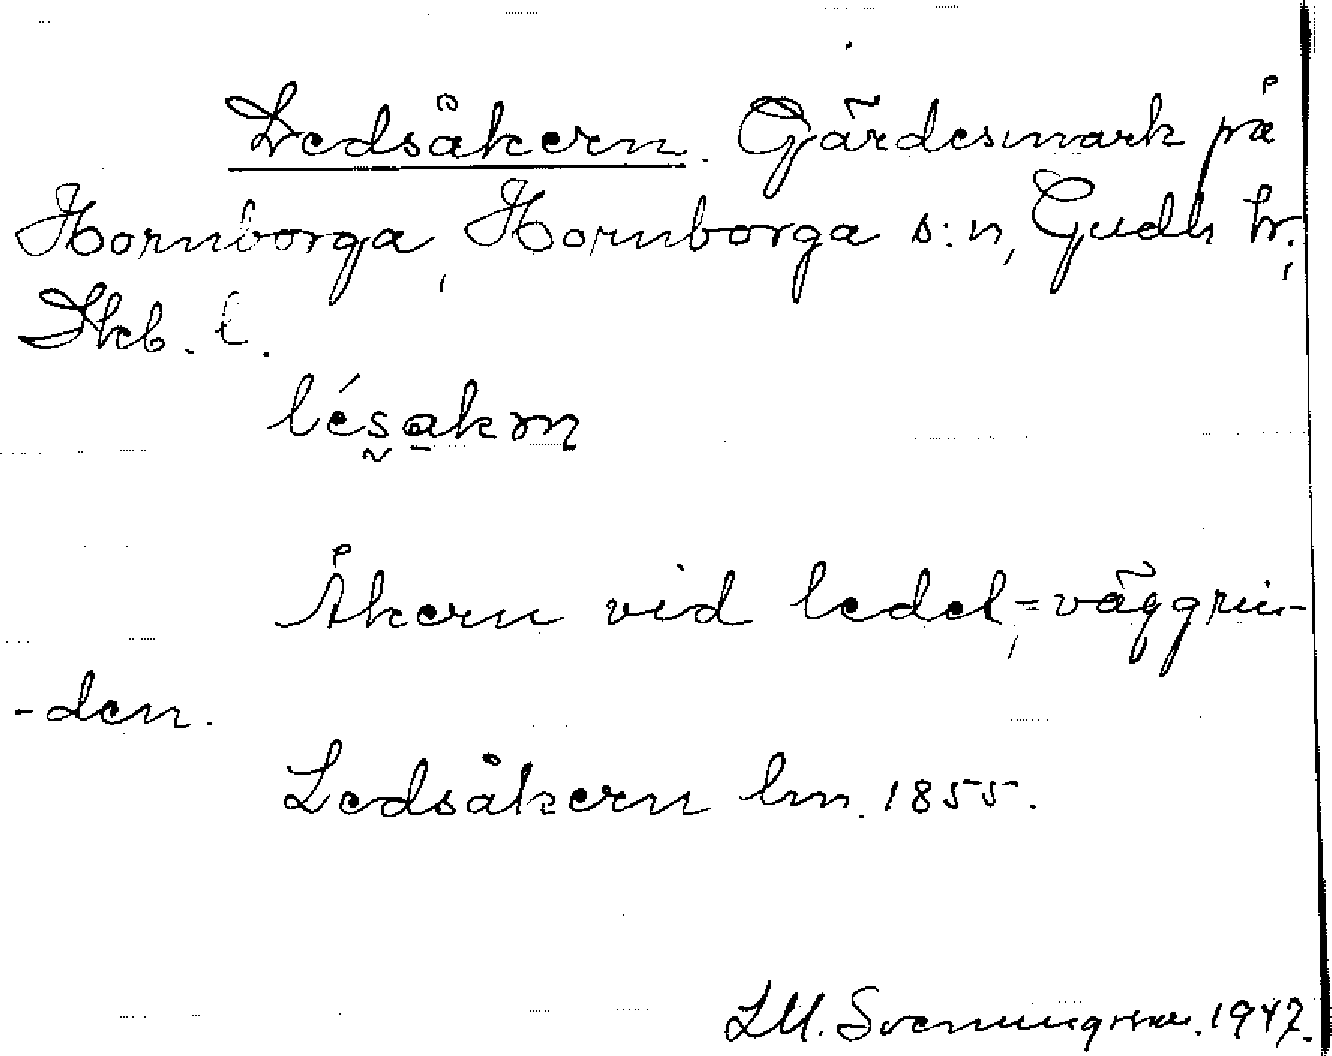 Ledsåkern. Gärdesmark på
Hornborga, Hornborga s:n, Gudh hr.,
Skb. l.
lésakrn
Åkern vid ledet, = väggrin-
-den.
Ledsåkern lm. 1855.
L M. Svenungsson. 1947.